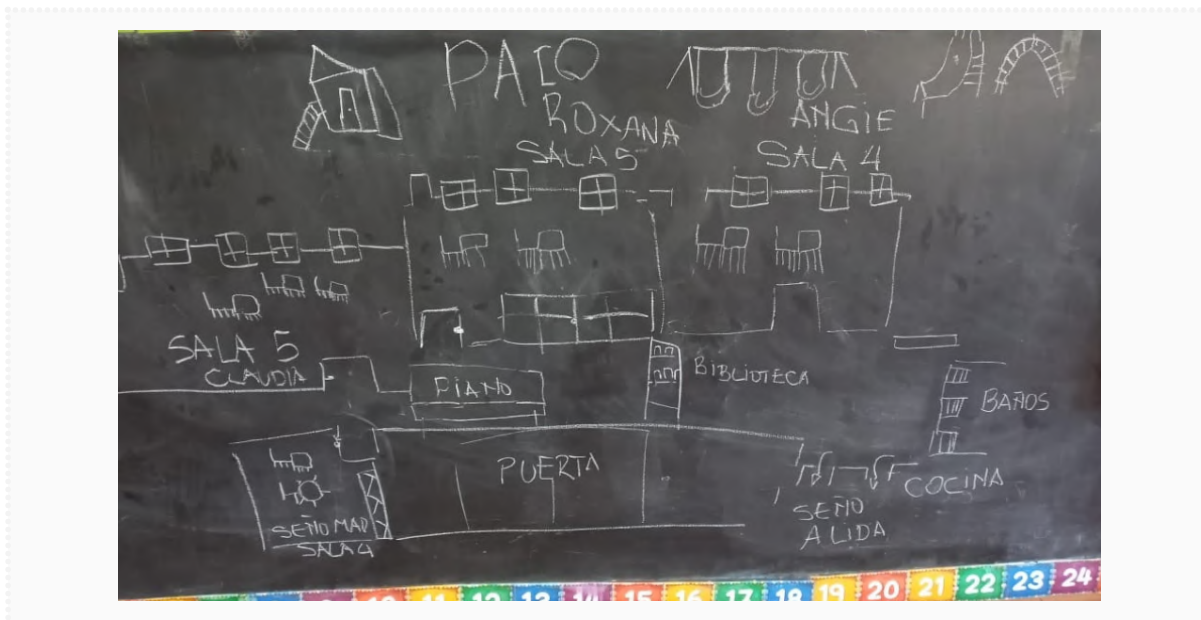 PACO
ROXANA
SALA 5
ANGIE
SALA 4
SALA 5
CLAUDIA
PIANO
BIBLIOTECA
BAÑOS
PUERTA
COCINA
SEÑO
ALIDA
SEÑO MAR
SALA 4
10 11 12 13 14 15 16 17 18 19 20 21 22 23 24